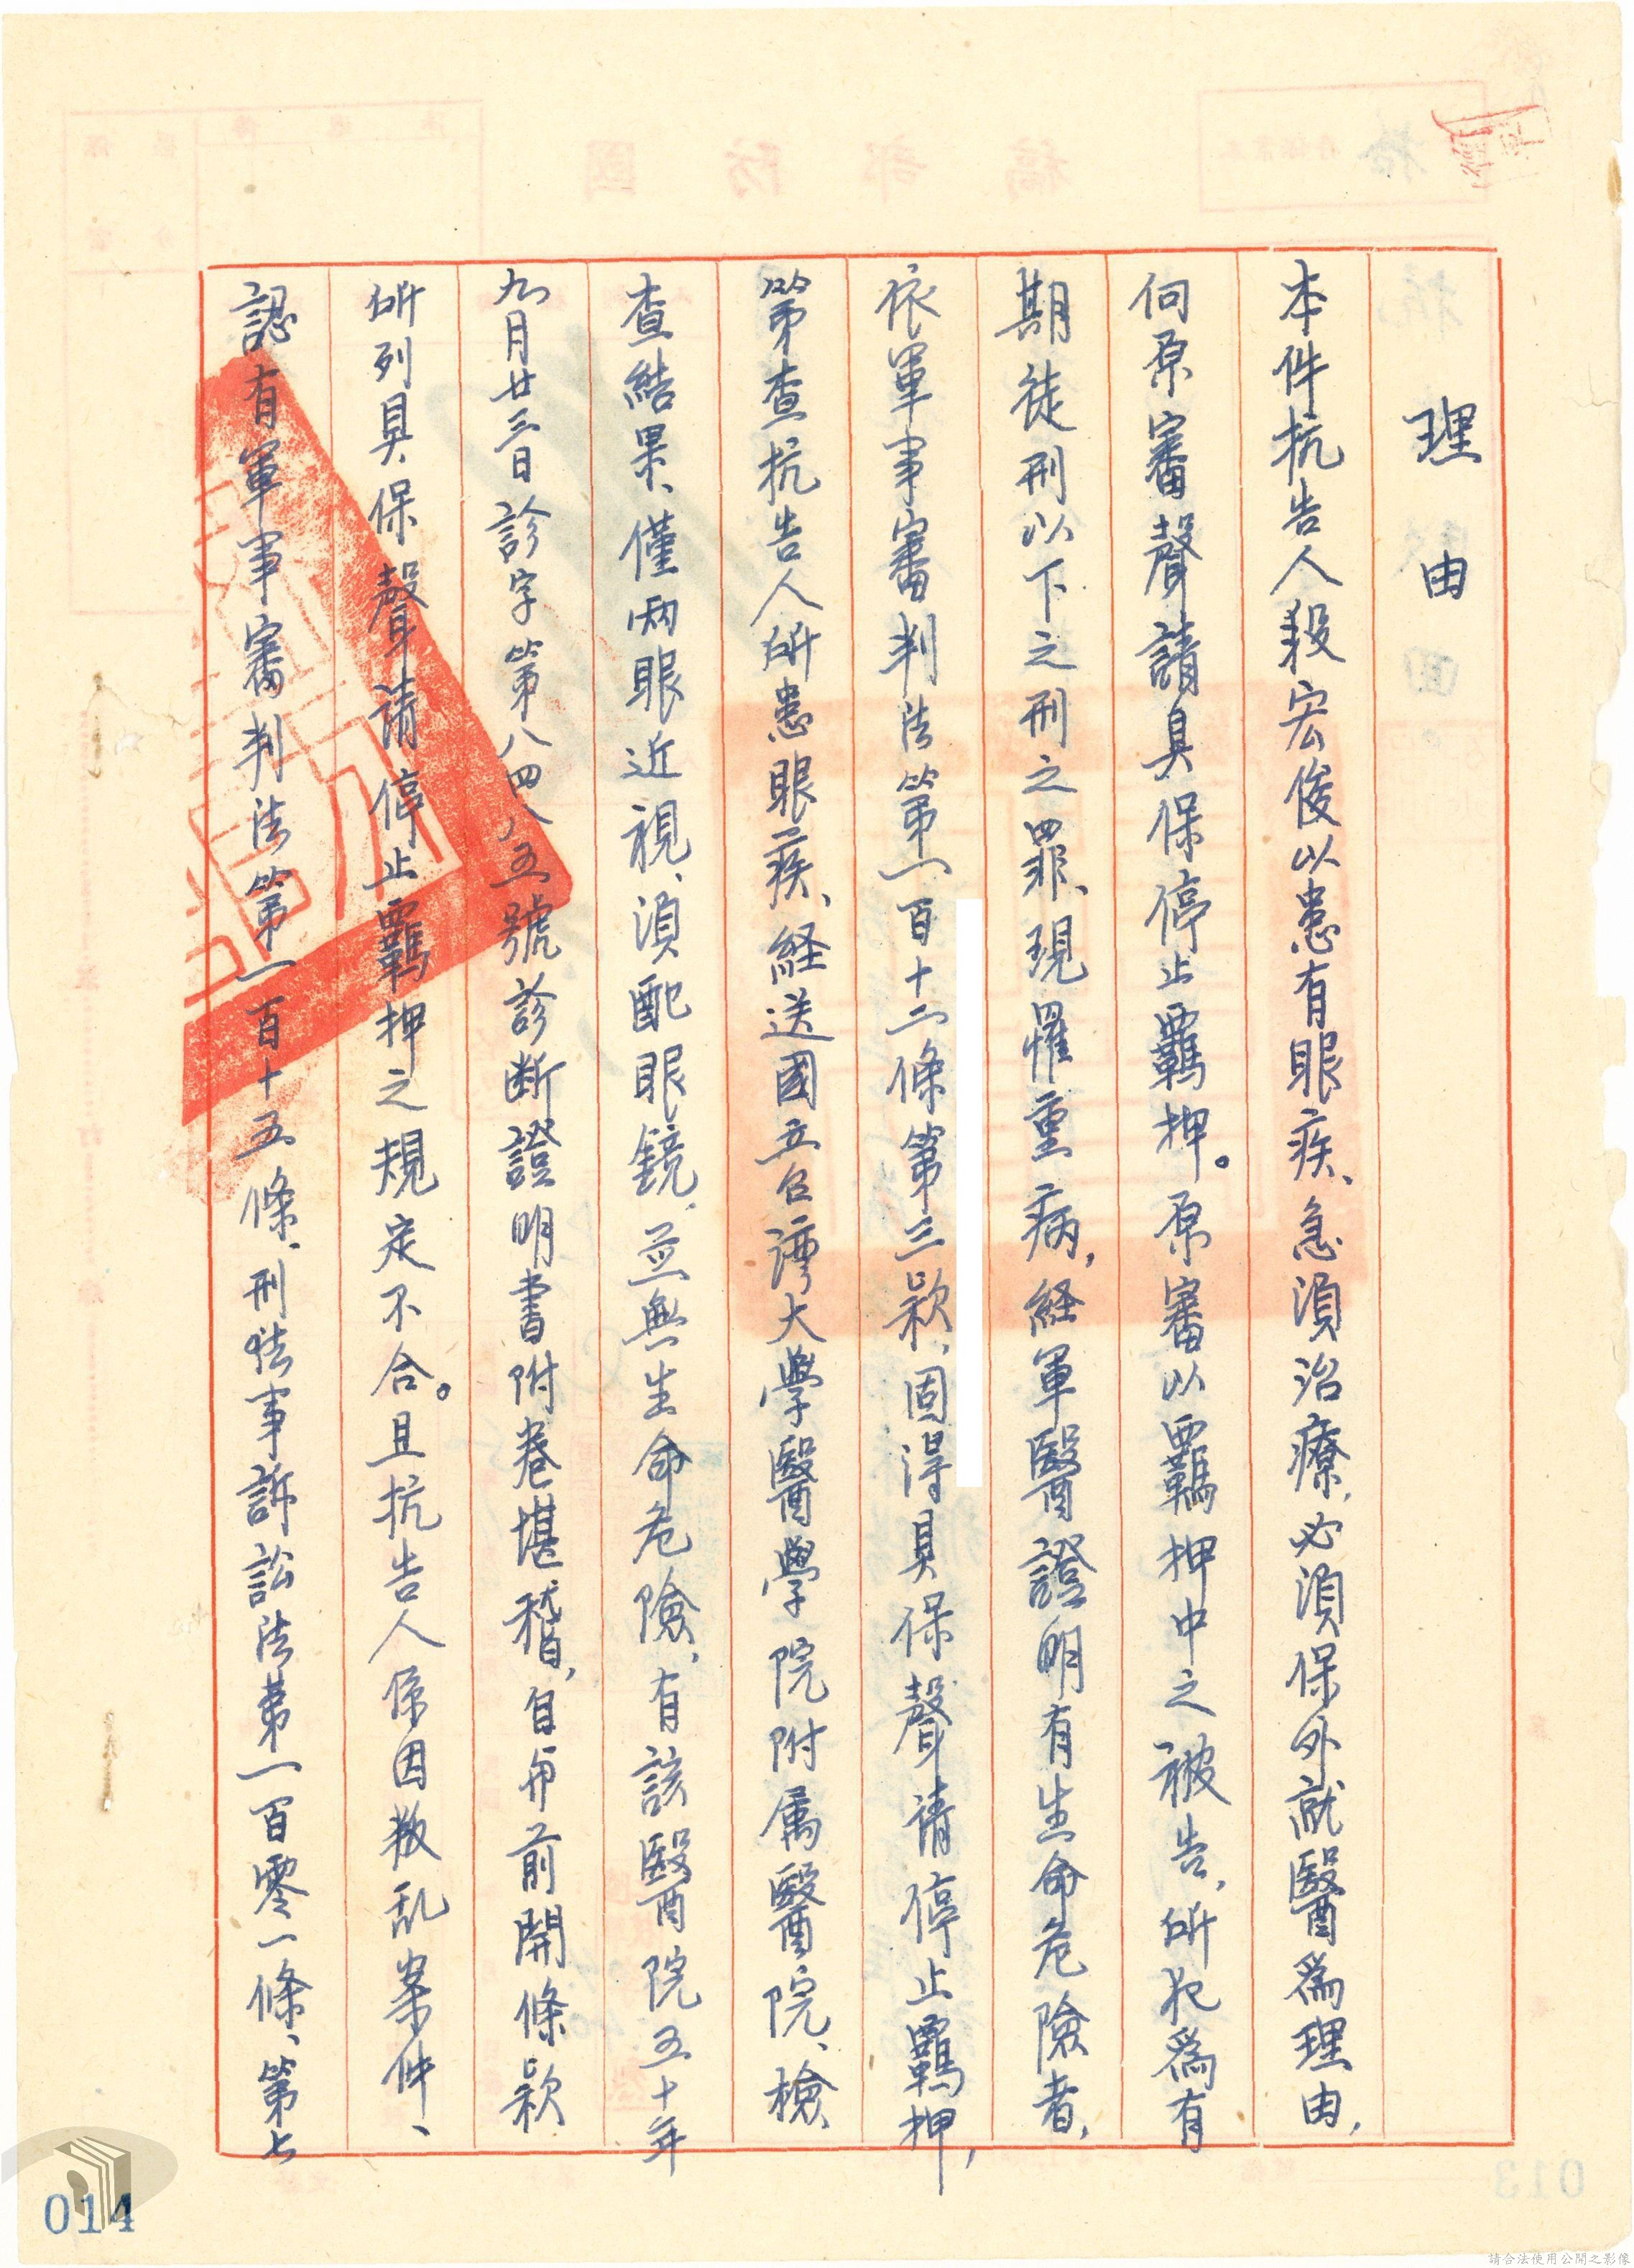 理由
本件抗告人殷宏俊以患有眼疾、急須治療、必須保外就醫為理由，
向原審聲請具保停止羈押。原審以羈押中之被告，所犯為有
期徒刑以下之刑之罪、現罹重病，経軍醫證明有生命危險者，
依軍事審判法第一百十二條第三款、固得具保聲請停止羈押，
第查抗告人所患眼疾、経送國立台灣大學醫學院附属醫院、檢
查結果、僅兩眼近視、須配眼鏡、並無生命危險、有該醫院五十年
九月廿三日診字第八四八五號診断證明書附卷堪稽，自與前開條款
所列具保聲請停止羈押之規定不合。且抗告人係因叛乱案件、
認有軍事審判法第一百十五條、刑法事訴訟法第一百零一條、第七
014
013
請合法使用公開之影像